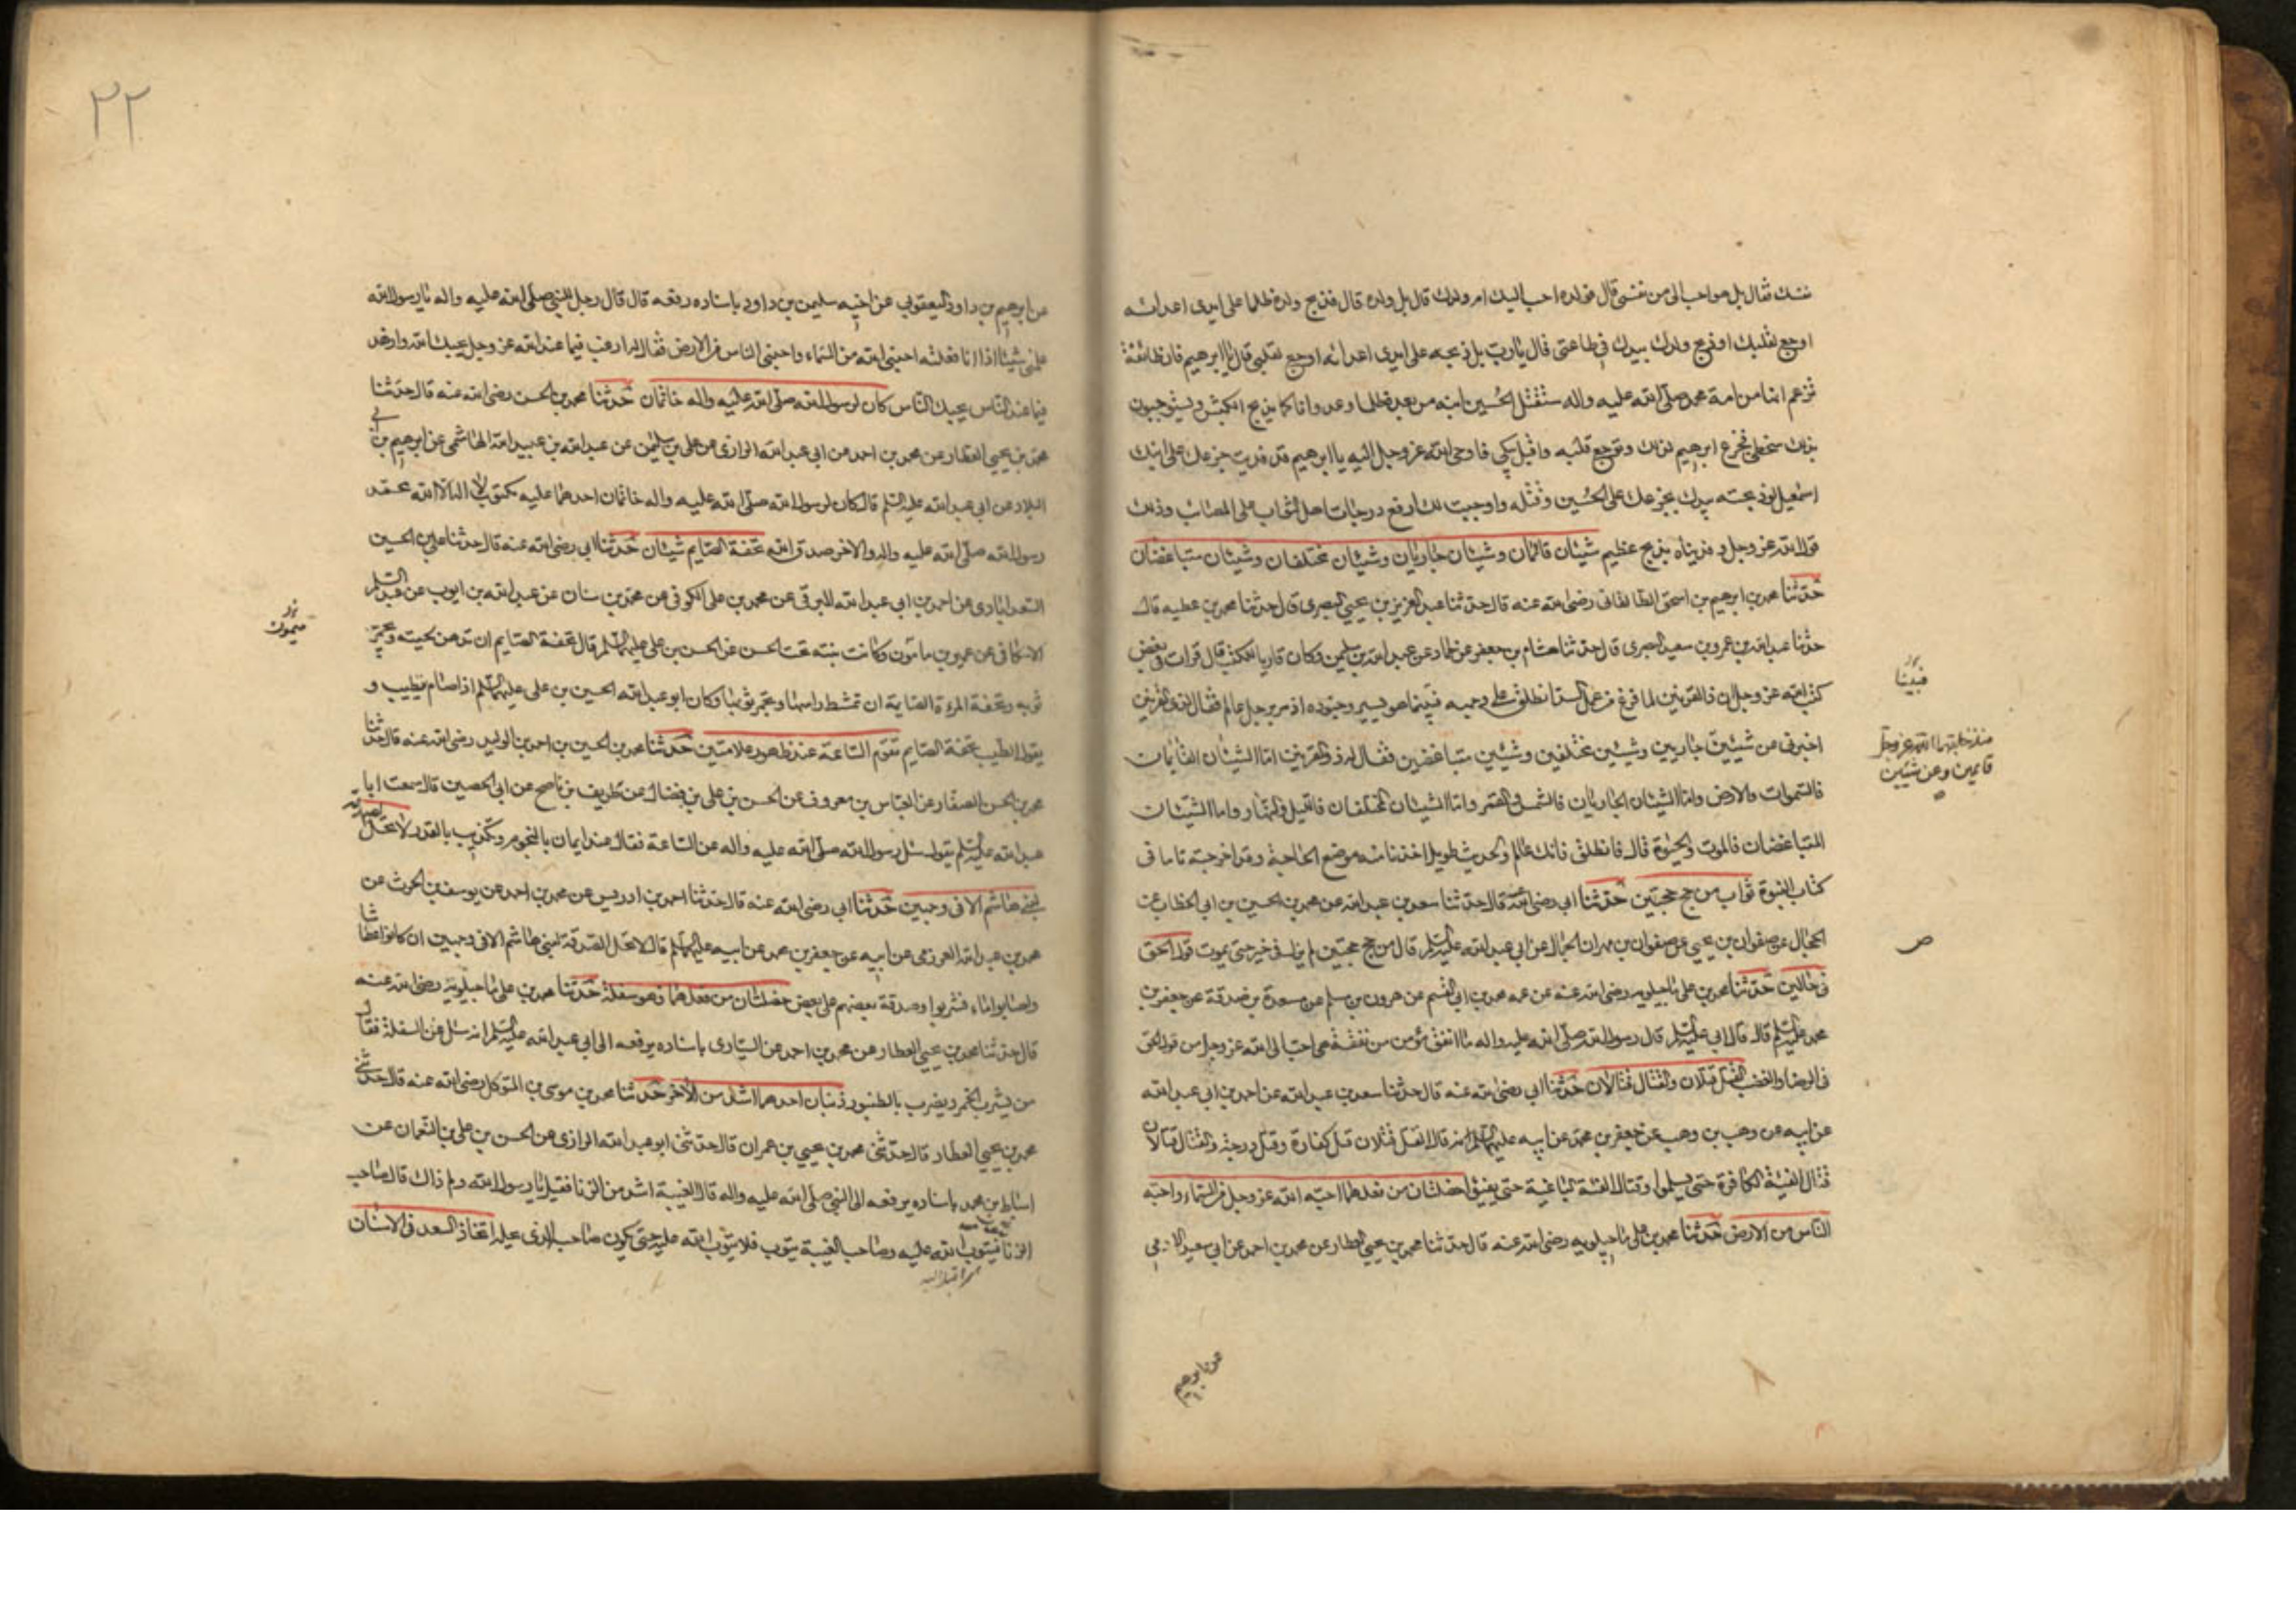 نفسك فقال بل هو احب الى من نفسى قال فولده احب اليك ام ولدك قال بل ولده قال فذبح ولده ظلما على ايدى اعدائه
اوجع لقلبك او ذبح ولدك بيدك فى طاعتى قال يا رب بل ذبحه على ايدى اعدائه اوجع لقلبى قال يا ابرهيم فان طائفة
تزعم انها من امة محمد صلى الله عليه واله ستقتل الحسين ابنه من بعده ظلما وعدوانا كما يذبح الكبش ويستوجبون
بذلك سخطى فجزع ابرهيم لذلك وتوجع قلبه واقبل يبكى فاوحى الله عز وجل اليه يا ابرهيم قد فديت جزعك على ابنك
اسمعيل لو ذبحته بيدك بجزعك على الحسين وقتله واوجبت لك ارفع درجات اهل الثواب على المصائب وذلك
قول الله عز وجل وفديناه بذبح عظيم شيئان قائمان وشيئان جاريان وشيئان مختلفان وشيئان متباغضان
حدثنا محمد بن ابرهيم بن اسحق الطالقانى رضى الله عنه قال حدثنا عبد العزيز بن يحيى البصرى قال حدثنا محمد بن عطيه قال
حدثنا عبد الله بن عمرو بن سعيد البصرى قال حدثنا هشام بن جعفر عن حماد عن عبد الله بن سليمن وكان قاريا للكتب قال قرات فى بعض
كتب الله عز وجل ان ذا القرنين لما فرغ من عمل السد انطلق على وجهه فبينما هو يسير وجنوده اذ مر برجل عالم فقال لذى القرنين
اخبرنى عن شيئين جاريين وشيئين مختلفين وشيئين متباغضين فقال له ذو القرنين اما الشيئان القائمان
فالسموات والارض واما الشيئان الجاريان فالشمس والقمر واما الشيئان المختلفان فالليل والنهار واما الشيئان
المتباغضان فالموت والحيوة قال فانطلق فانك عالم والحديث طويل اخذنا منه موضع الحاجة وقد اخرجته تاما فى
كتاب النبوة ثواب من حج حجتين حدثنا ابى رضى الله عنه قال حدثنا سعد بن عبد الله عن محمد بن الحسين بن ابى الخطاب عن
الحجال عن صفوان بن يحيى عن صفوان بن مهران الجمال عن ابى عبد الله عليه السلم قال من حج حجتين لم يزل فى خير حتى يموت قول الحق
فى حالين حدثنا محمد بن على ماجيلويه رضى الله عنه عن عمه محمد بن ابى القسم عن هرون بن مسلم عن مسعدة بن صدقة عن جعفر بن
محمد عليه السلم قال قال ابى عليه السلم قال رسول الله صلى الله عليه واله ما انفق مؤمن من نفقة هى احب الى الله عز وجل من قول الحق
فى الرضا والغضب القتل قتلان والقتال قتالان حدثنا ابى رضى الله عنه قال حدثنا سعد بن عبد الله عن احمد بن ابى عبد الله
عن ابيه عن وهب بن وهب عن جعفر بن محمد عن ابيه عليهما السلم انه قال القتل قتلان قتل كفارة وقتل درجة والقتال قتالان
قتال الفئة الكافرة حتى يسلموا وقتال الفئة الباغية حتى يفيئوا خصلتان من فعلهما احبه الله عز وجل من السماء واحبه
الناس من الارض حدثنا محمد بن على ماجيلويه رضى الله عنه قال حدثنا محمد بن يحيى العطار عن محمد بن احمد عن ابى سعيد الادمى
فبينا
منذ خلقهما الله عز وجل
قايمين وعن شيئين
ص
عن ابرهيم
٢٢
عن ابرهيم بن داود اليعقوبى عن اخيه سليمن بن داود باسناده رفعه قال قال رجل للنبى صلى الله عليه واله يا رسول الله
علمنى شيئا اذا انا فعلته احبنى الله من السماء واحبنى الناس من الارض فقال له ارغب فيما عند الله عز وجل يحبك الله وازهد
فيما عند الناس يحبك الناس كان لرسول الله صلى الله عليه واله خاتمان حدثنا محمد بن الحسن رضى الله عنه قال حدثنا
محمد بن يحيى العطار عن محمد بن احمد عن ابى عبد الله الرازى عن على بن سليمن عن عبد الله بن عبيد الله الهاشمى عن ابرهيم بن ابى
البلاد عن ابى عبد الله عليه السلم قال كان لرسول الله صلى الله عليه واله خاتمان احدهما عليه مكتوب لا اله الا الله محمد
رسول الله صلى الله عليه واله والاخر صدق الله تحفة الصايم شيئان حدثنا ابى رضى الله عنه قال حدثنا على بن الحسين
السعدابادى عن احمد بن ابى عبد الله البرقى عن محمد بن على الكوفى عن محمد بن سنان عن عبد الله بن ايوب عن عبد السلم
الاسكافى عن عمير بن مامون وكانت بنته تحت الحسن عن الحسن بن على عليهما السلم قال تحفة الصايم ان تدهن لحيته وتجمر
ثوبه وتحفة المرءة الصايمة ان تمشط راسها وتجمر ثوبها وكان ابو عبد الله الحسين بن على عليهما السلم اذا صام يتطيب و
يقول الطيب تحفة الصايم تقوم الساعة عند ظهور علامتين حدثنا محمد بن الحسين بن احمد بن الوليد رضى الله عنه قال حدثنا
محمد بن الحسن الصفار عن العباس بن معروف عن الحسن بن على بن فضال عن ظريف بن ناصح عن ابى الحصين قال سمعت ابا
عبد الله عليه السلم يقول سئل رسول الله صلى الله عليه واله عن الساعة فقال عند ايمان بالنجوم وتكذيب بالقدر لا تحل الصدقة
لبنى هاشم الا فى وجهين حدثنا ابى رضى الله عنه قال حدثنا احمد بن ادريس عن محمد بن احمد عن يوسف بن الحرث عن
محمد بن عبد الله العرزمى عن ابيه عن جعفر بن محمد عن ابيه عليهما السلم قال لا تحل الصدقة لبنى هاشم الا فى وجهين ان كانوا عطاشا
واصابوا ماء فشربوا وصدقة بعضهم على بعض خصلتان من فعلهما فهو سفلة حدثنا محمد بن على ماجيلويه رضى الله عنه
قال حدثنا محمد بن يحيى العطار عن محمد بن احمد عن السيارى باسناده يرفعه الى ابى عبد الله عليه السلم انه سئل عن السفلة فقال
من يشرب الخمر ويضرب بالطنبور ذنبان احدهما اشد من الاخر حدثنا محمد بن موسى بن المتوكل رضى الله عنه قال حدثنى
محمد بن يحيى العطار قال حدثنى محمد بن يحيى بن عمران قال حدثنى ابو عبد الله الرازى عن الحسن بن على بن النعمان عن
اسباط بن محمد باسناده يرفعه الى النبى صلى الله عليه واله قال الغيبة اشد من الزنا فقيل يا رسول الله ولم ذاك قال صاحب
الزنا فيتوب الله عليه وصاحب الغيبة يتوب فلا يتوب الله عليه حتى يكون صاحبه الذى يحله اتخاذ السعد فى الاسنان
ميمون